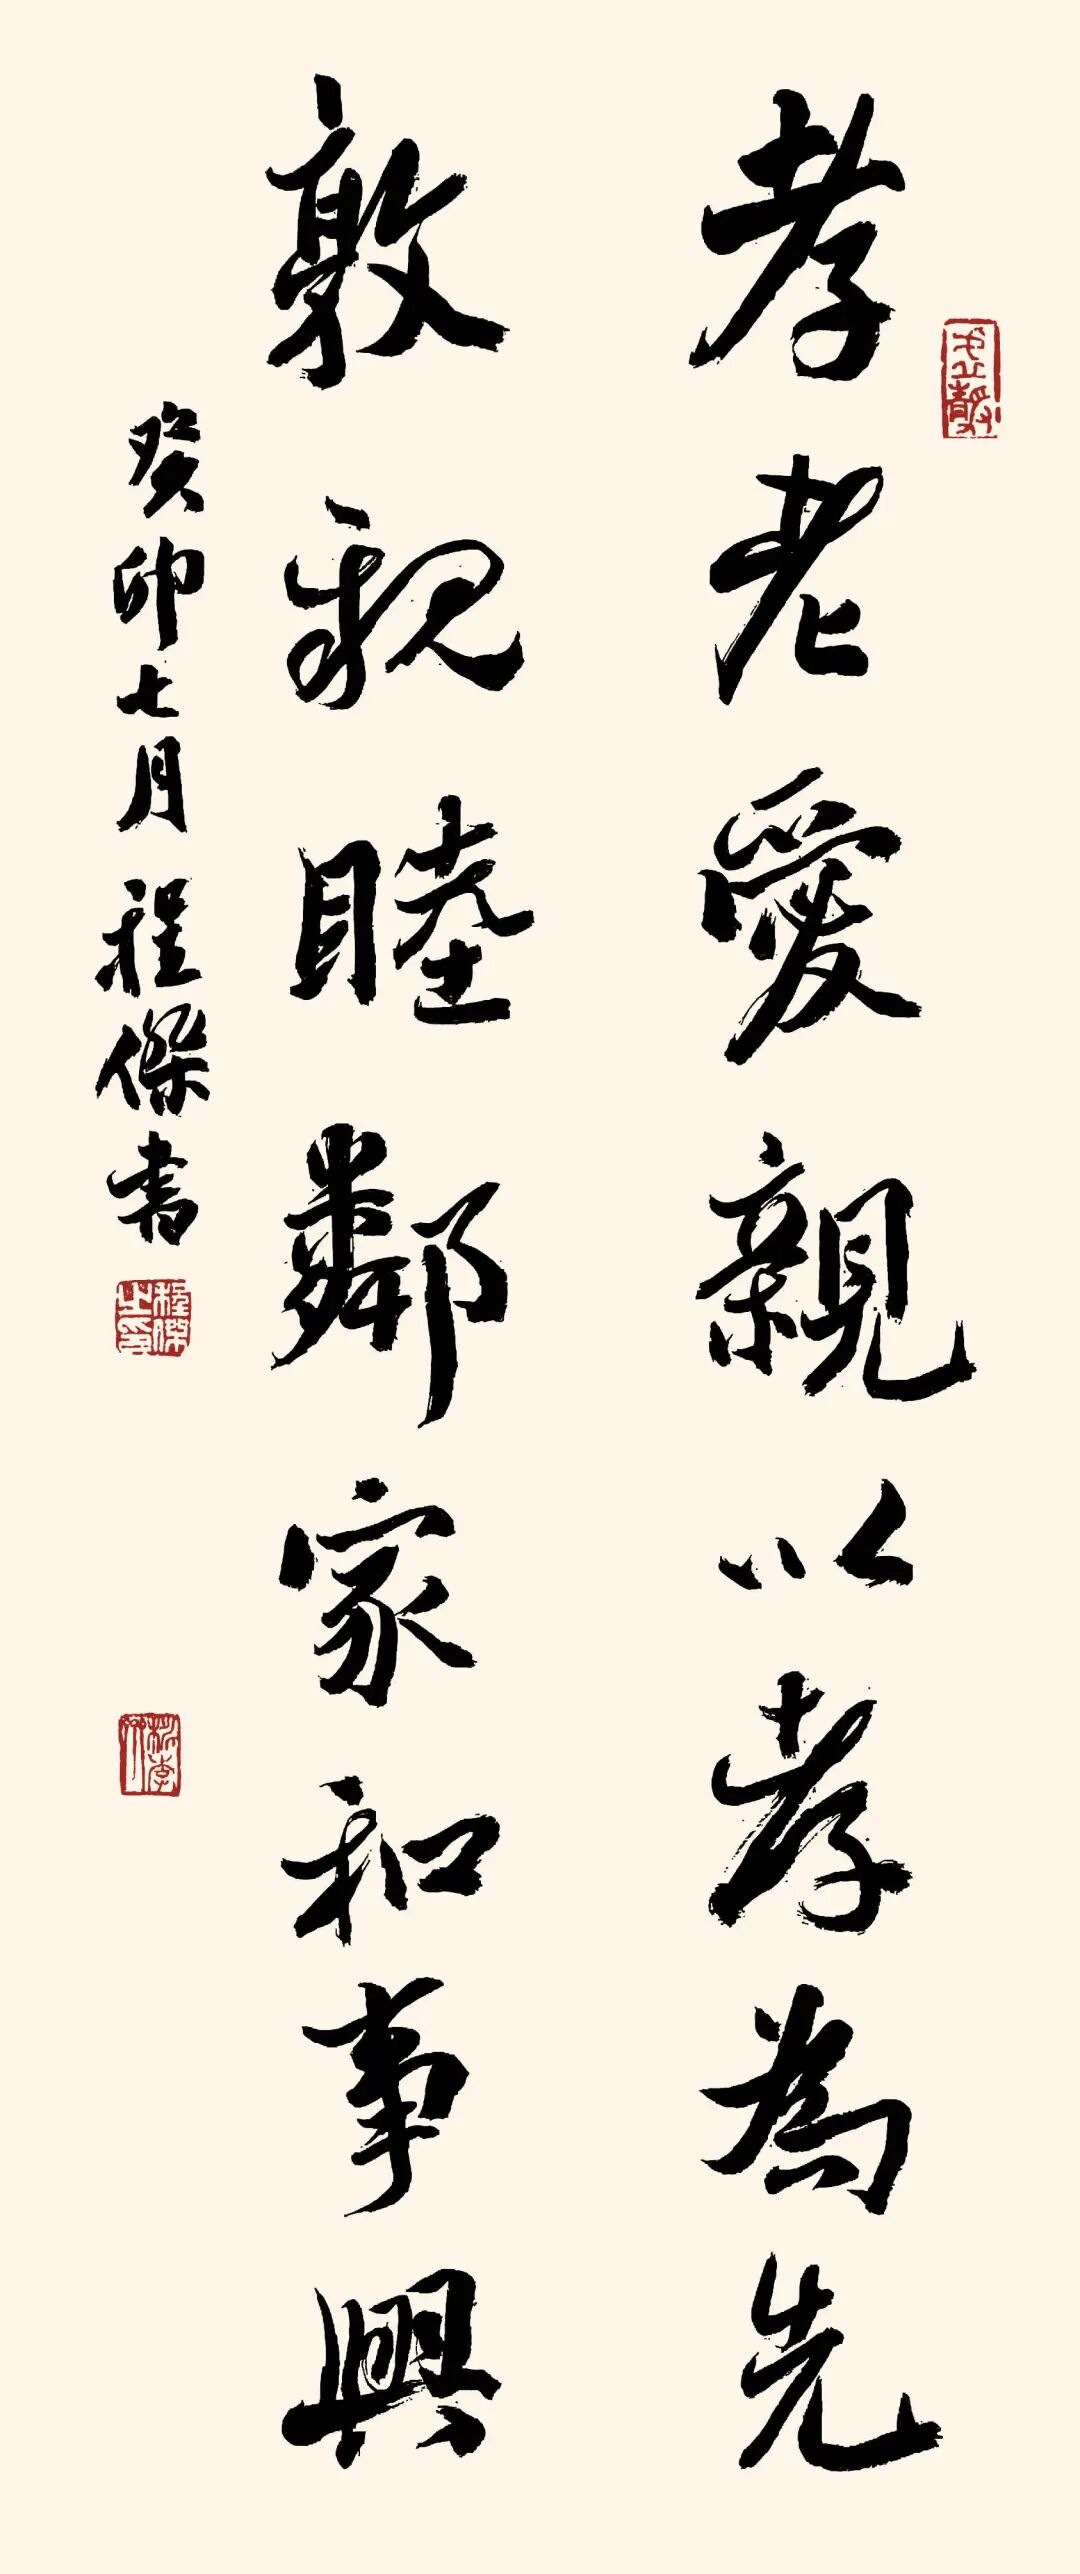 孝老愛親以孝為先
敦親睦鄰家和事興
癸卯七月程傑書
程傑之印